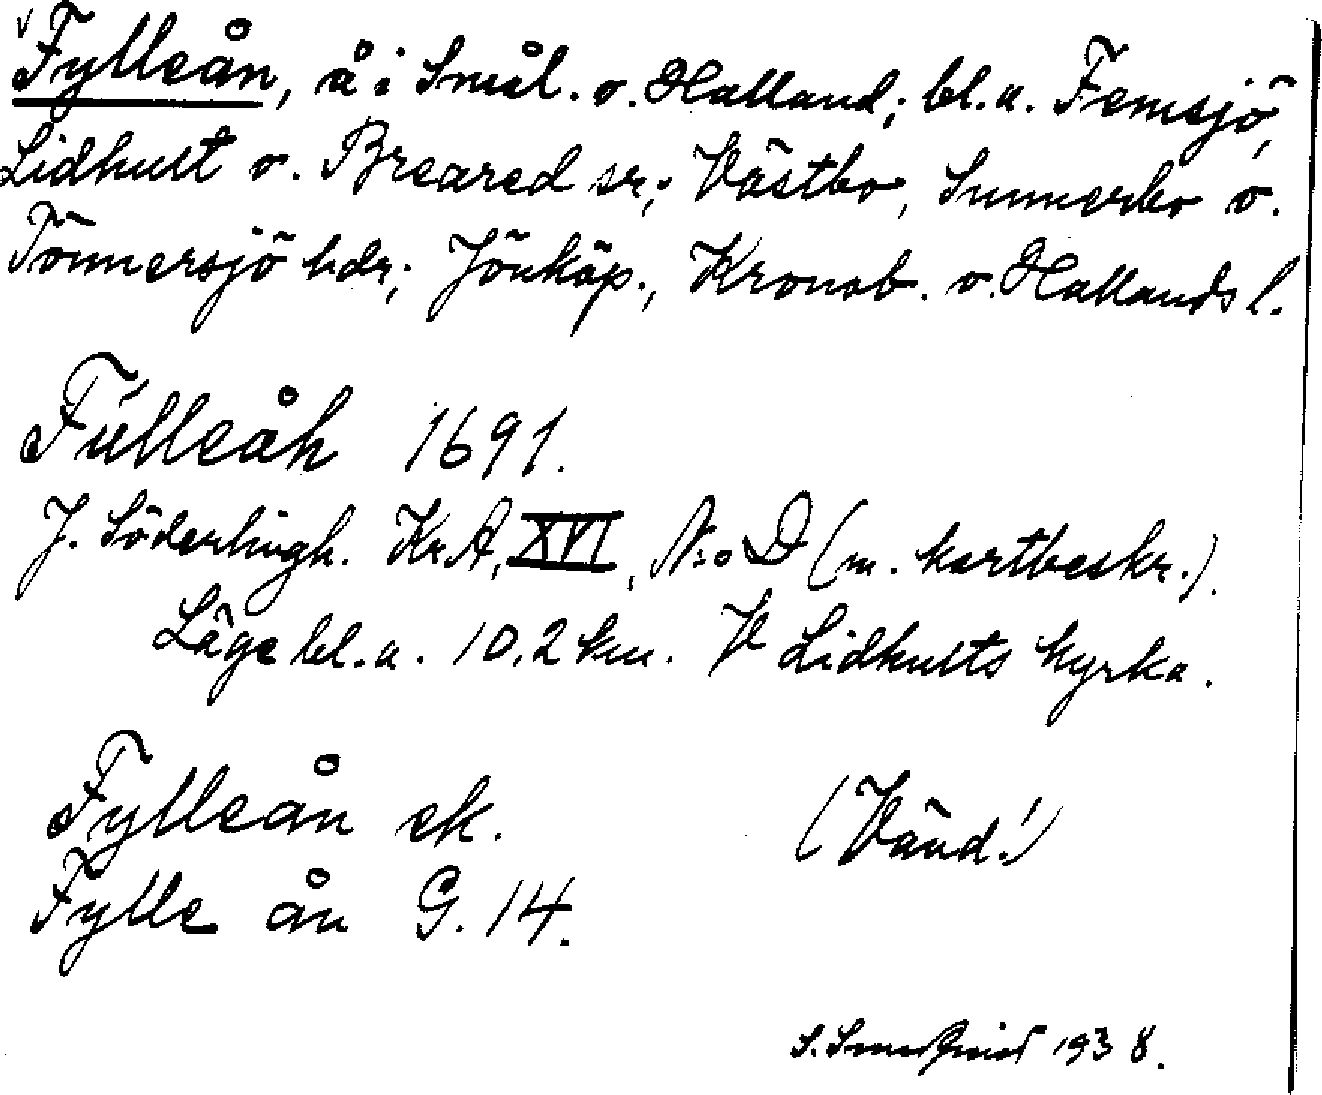 Fylleån, å i Smål. o. Halland; bl.a. Femsjö,
Lidhult o. Breared sr.; Västbo, Sunnerbo o.
Tönnersjö hdr; Jönköp., Kronob. o. Hallands l.
Fülleåh 1691.
J. Söderlingh. Kr.A, XVI, N:o D (m. kartbeskr.).
Läge bl.a. 10,2 km. V Lidhults kyrka.
Fylleån ek. (Vänd!)
Fylle ån G. 14.
S. 1938.